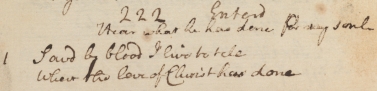 222 Enterd
Hear what he has done for my soul
1 Savd by blood I live to tele
What the love of Christ has done